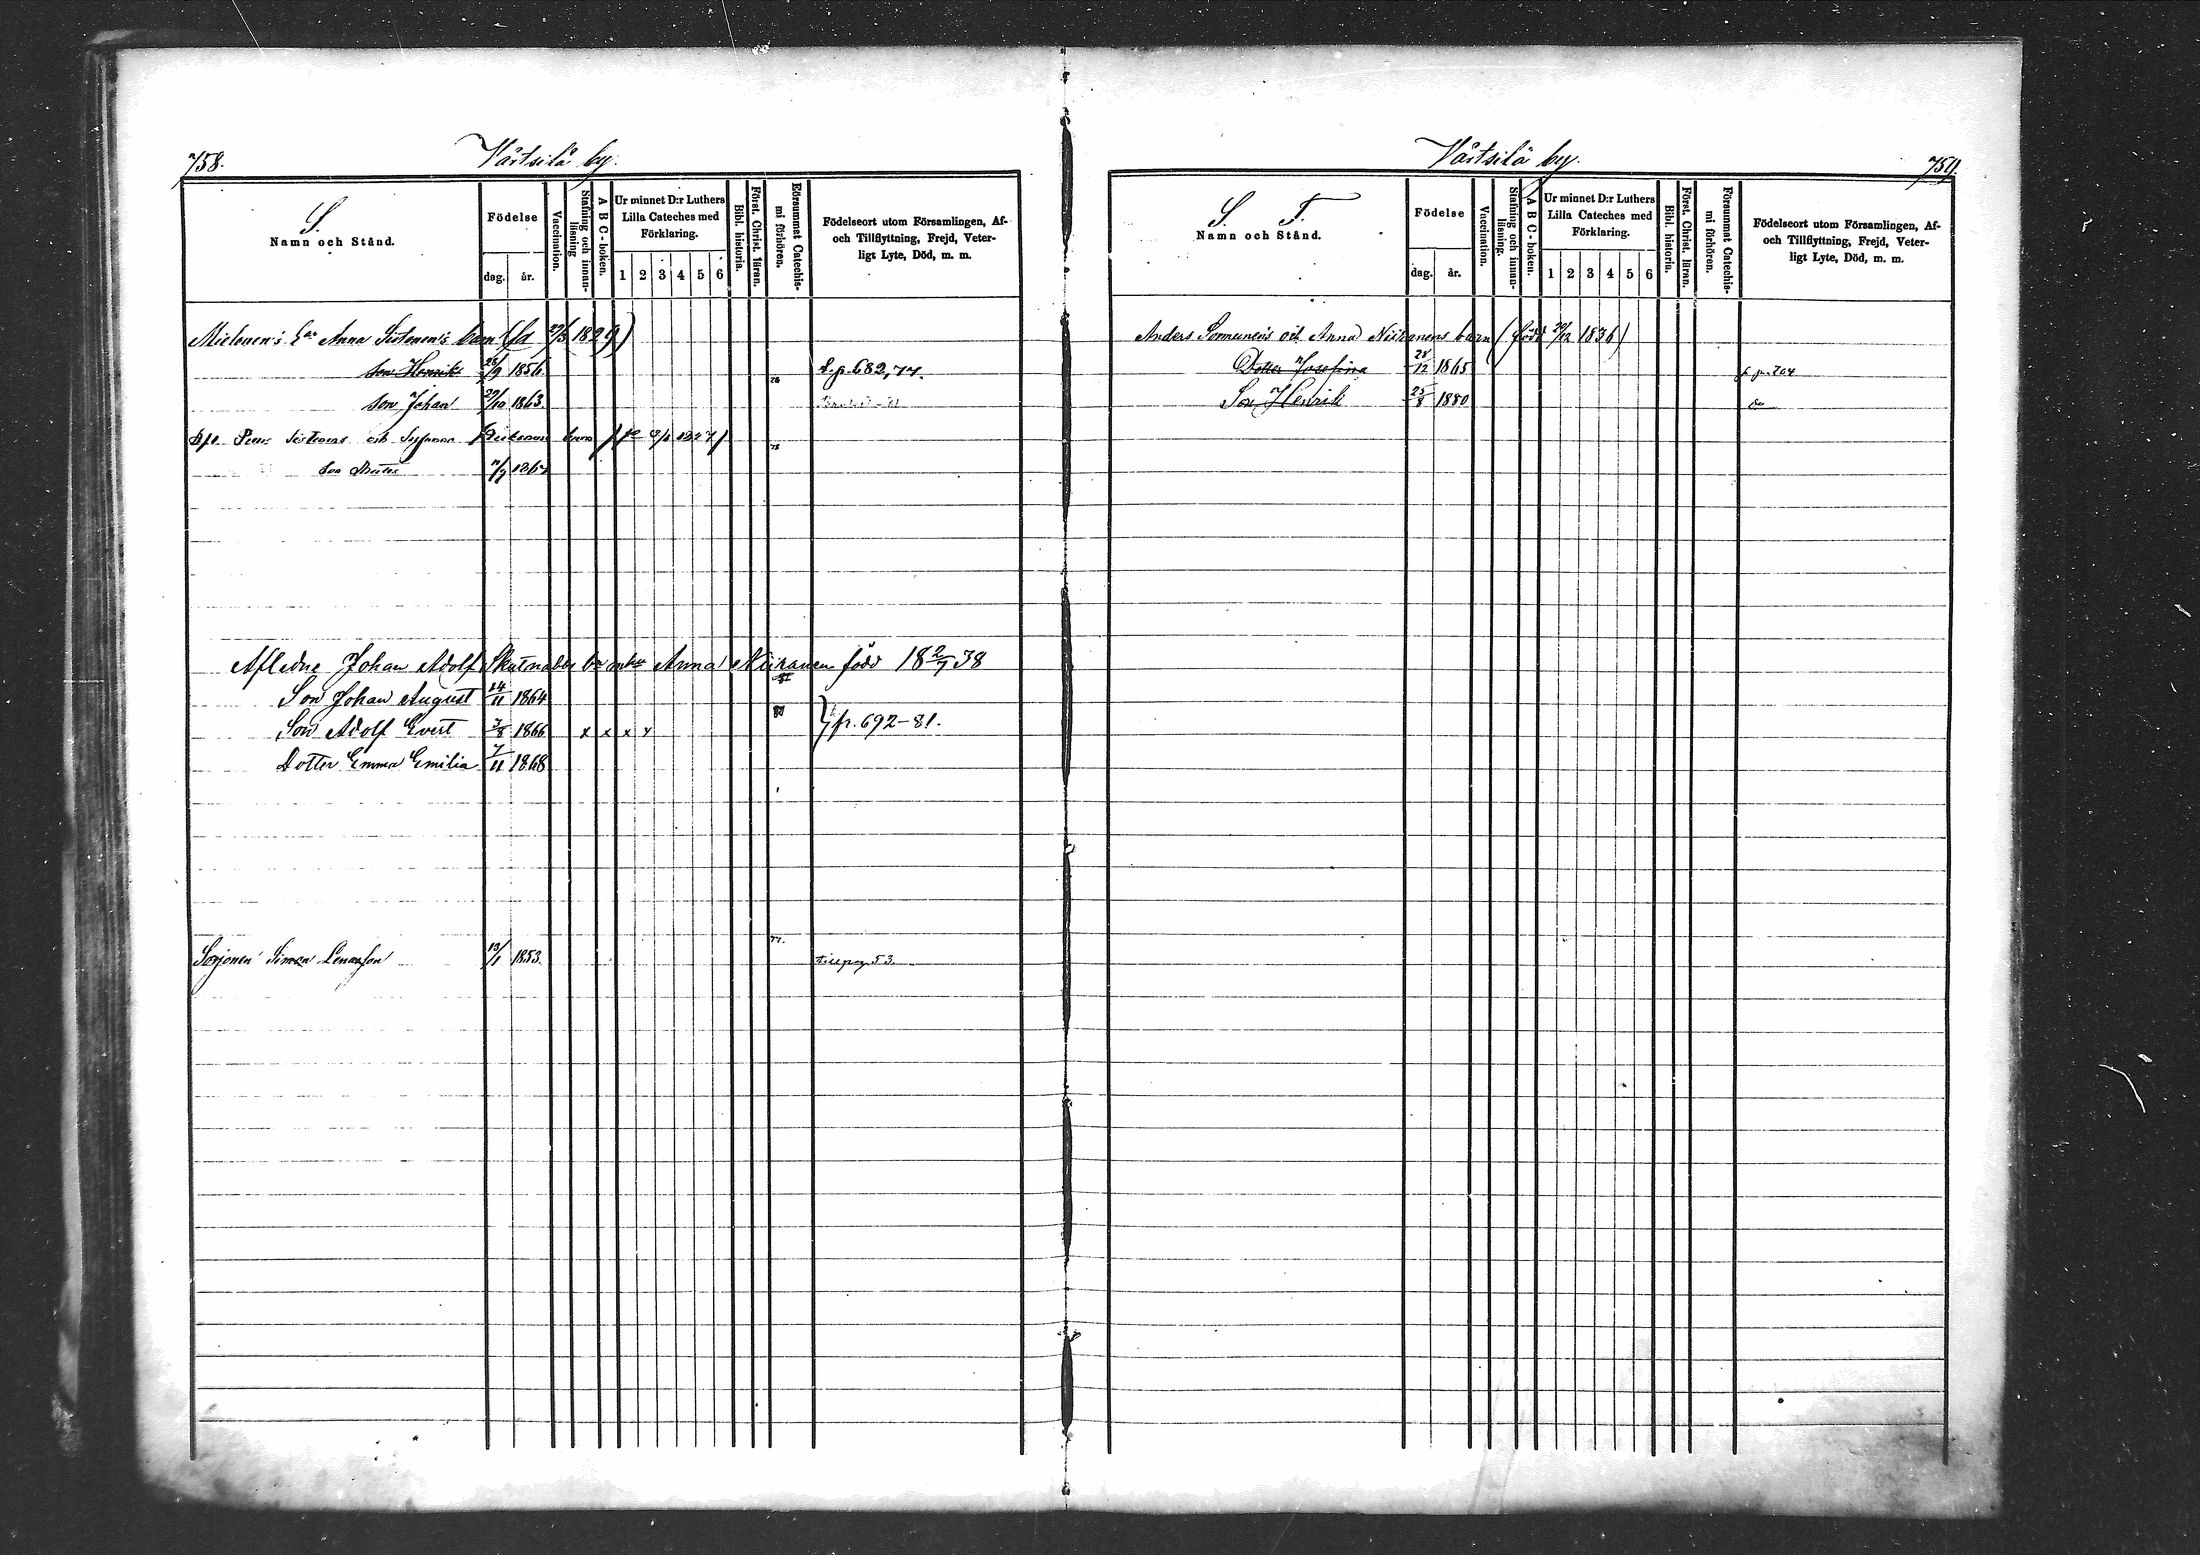 758.
Värtsilä by.
S.
Namn och Stånd.
Födelse
dag. år.
Vaccination.
Stafning och innan-läsning
A B C - boken.
Ur minnet D:r Luthers
Lilla Cateches med
Förklaring.
1 2 3 4 5 6
Bibl. historia.
Först. Christ. läran.
Försummat Catechis-mi förhören.
Födelseort utom Församlingen, Af-
och Tillflyttning, Frejd, Veter-
ligt Lyte, Död, m. m.
Mielonen's Anna Sistonen's barn (fd 1829)
Son Henrik 28/9 1856. d. p. 682, 77.
Son Johan 29/10 1863.
78
och barn 1827)
1867
Aflidne Johan Adolf Skutnabbs o enka Anna Niiranen född 18 2/7 38
Son Johan August 14/11 1864
Son Adolf Evert 3/8 1866 x x x x } fr. 692-81.
Dotter Emma Emilia 7/11 1868
77.
Sorjonen Simon 13/1 1853. till pag 53.
Värtsilä by.
759.
S. T.
Namn och Stånd.
Födelse
dag. år.
Vaccination.
Stafning och innan-läsning.
A B C - boken.
Ur minnet D:r Luthers
Lilla Cateches med
Förklaring.
1 2 3 4 5 6
Bibl. historia.
Först. Christ. läran.
Försummat Catechis-mi förhören.
Födelseort utom Församlingen, Af-
och Tillflyttning, Frejd, Veter-
ligt Lyte, Död, m. m.
Anders Sormunens och Anna Niiranens barn (född 20/12 1836)
Dotter Josefina 28/12 1865 704
Son Henrik 25/8 1880 do